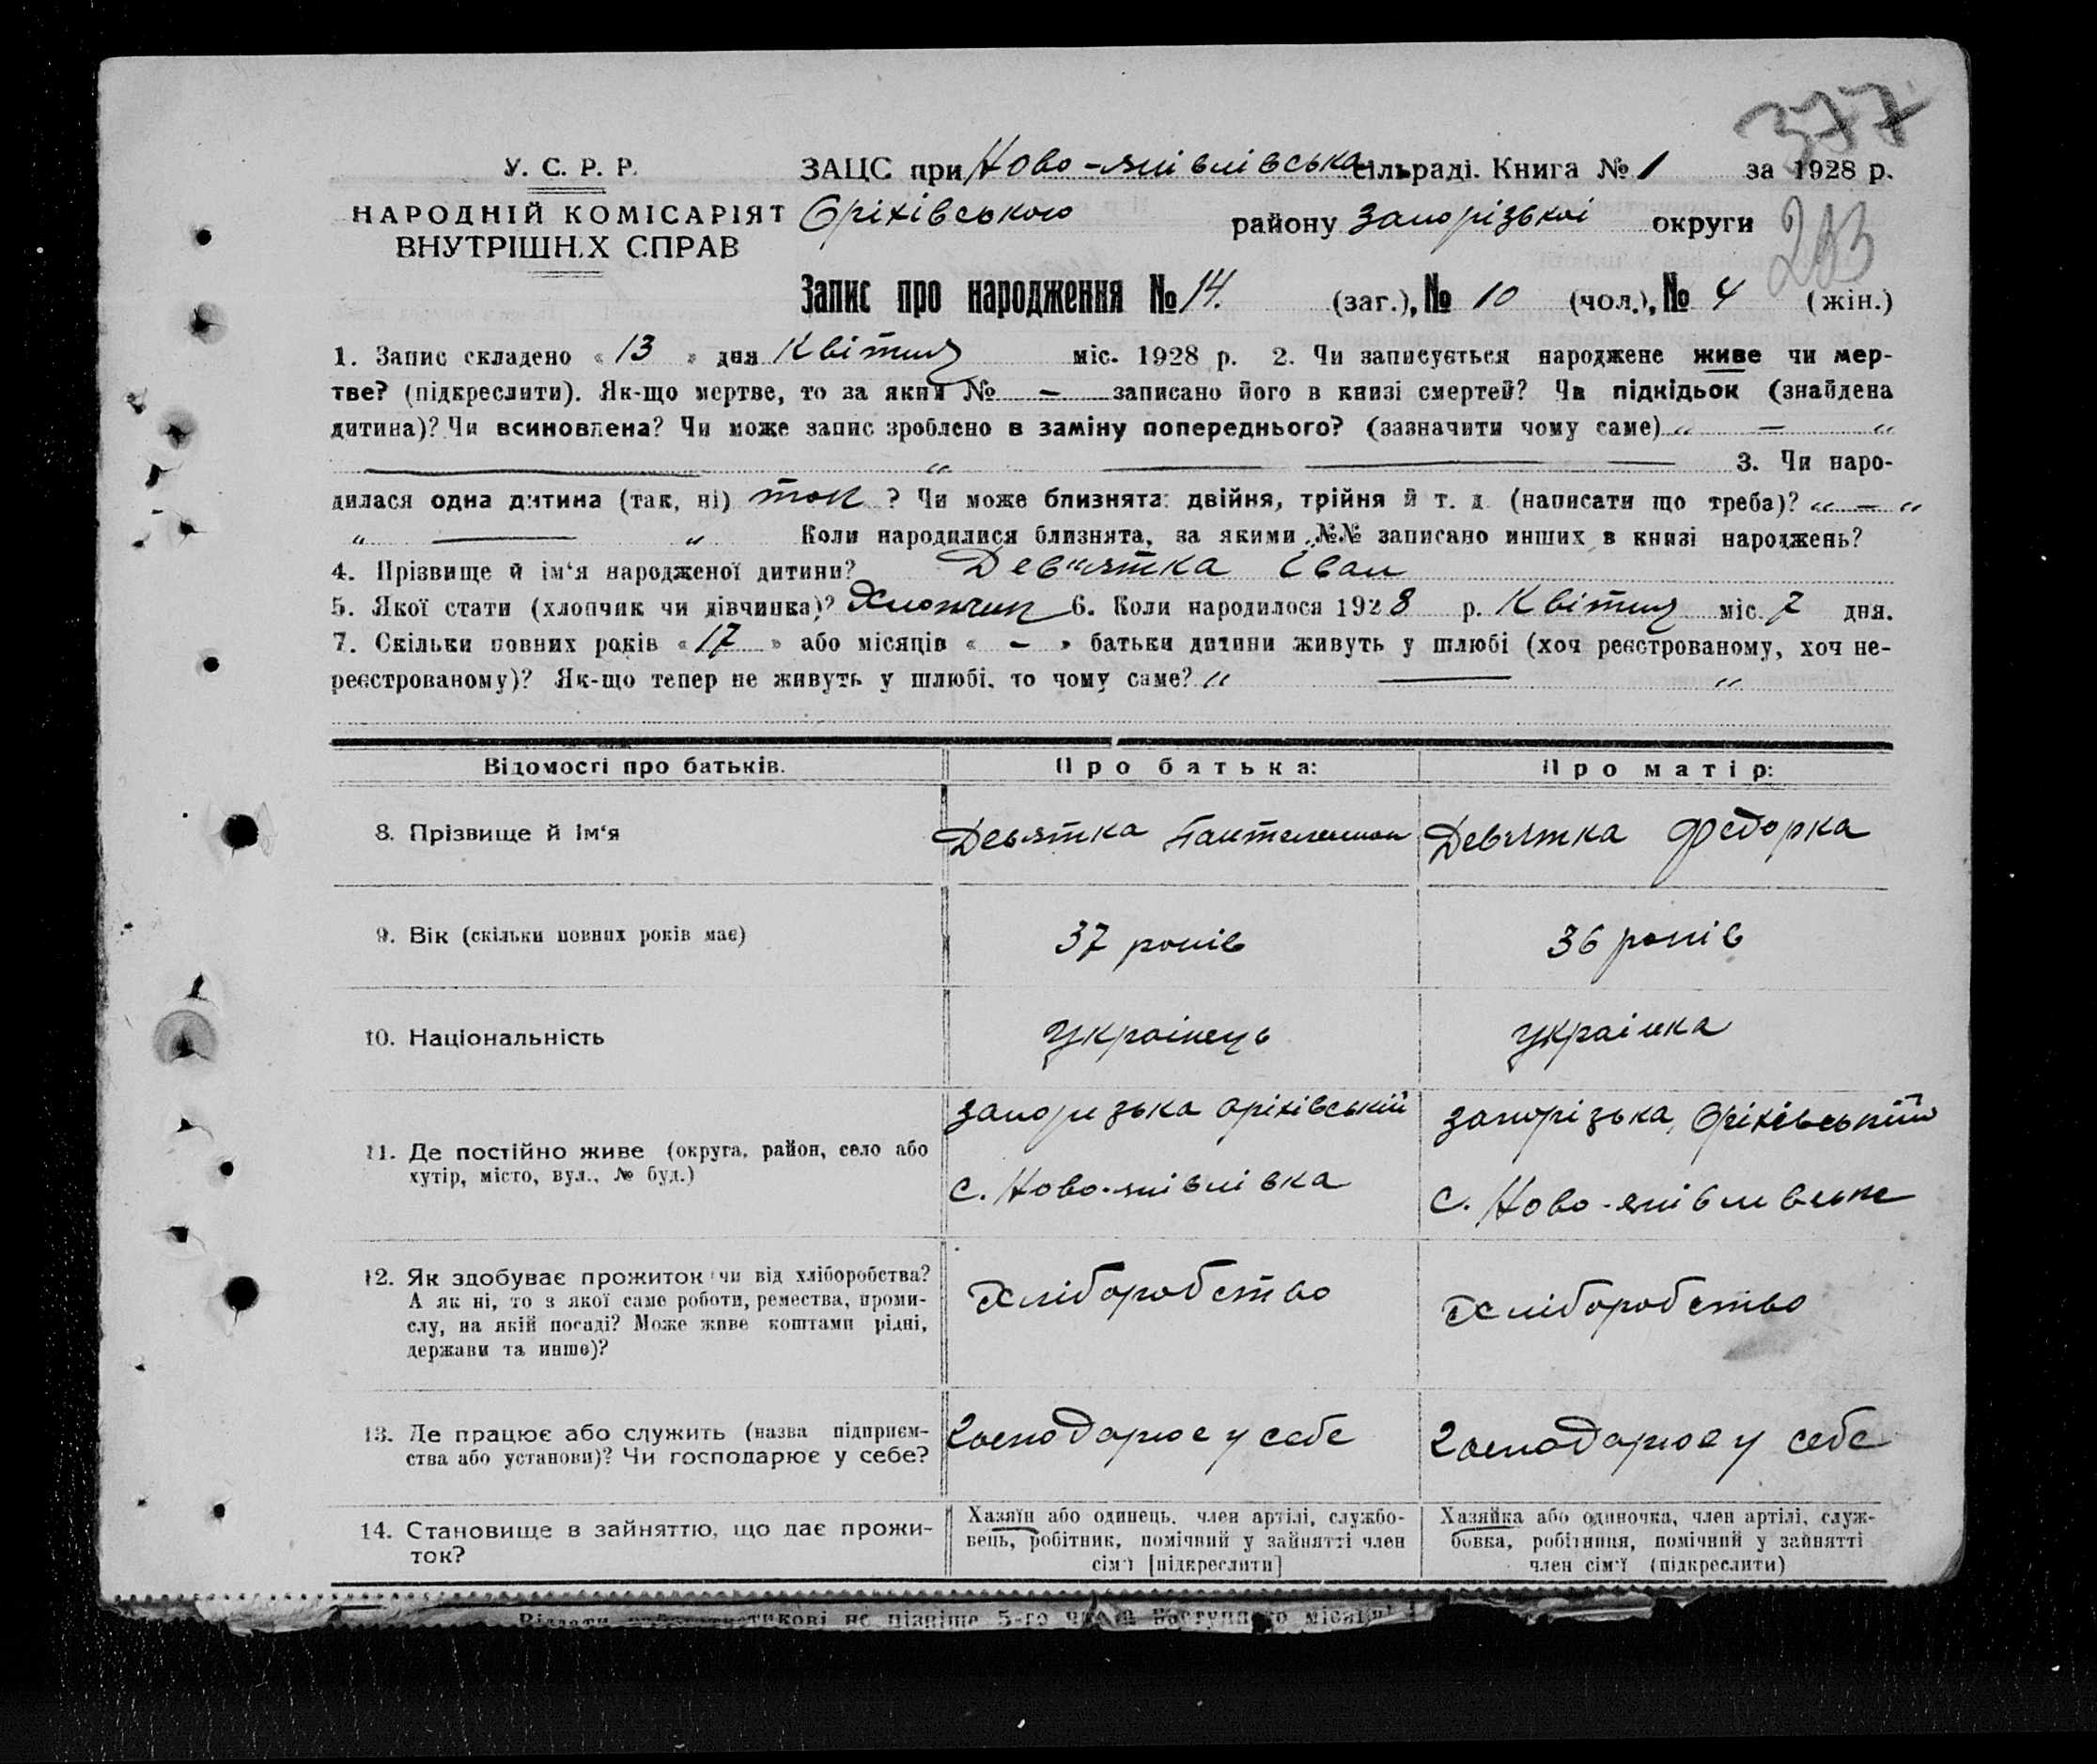 377
У. С. Р. Р. ЗАЦС при Ново-яківлівська сільраді. Книга № 1 за 1928 р.
НАРОДНІЙ КОМІСАРІЯТ Оріхівського району Запорізької округи
ВНУТРІШНІХ СПРАВ
Запис про народження № 14. (заг.), № 10 (чол.), № 4 (жін.)
1. Запис складено « 13 » дня Квітня міс. 1928 р. 2. Чи записується народжене живе чи мер-
тве? (підкреслити). Як-що мертве, то за яким № — записано його в книзі смертей? Чи підкідьок (знайдена
дитина)? Чи всиновлена? Чи може запис зроблено в заміну попереднього? (зазначити чому саме) „ — “
„ — 3. Чи наро-
дилася одна дитина (так, ні) так ? Чи може близнята: двійня, трійня й т. д. (написати що треба)? „ — “
„ — “ Коли народилися близнята, за якими №№ записано инших в книзі народжень?
4. Прізвище й ім‘я народженої дитини? Дев'ятка Іван
5. Якої стати (хлопчик чи дівчинка)? Хлопчик 6. Коли народилося 1928 р. Квітня міс. 7 дня.
7. Скільки повних років « 17 » або місяців « - » батьки дитини живуть у шлюбі (хоч реєстрованому, хоч не-
реєстрованому)? Як-що тепер не живуть у шлюбі, то чому саме? „ — “
Відомості про батьків. Про батька: Про матір:
8. Прізвище й ім‘я Девятка Пантелемон Девятка Федорка
9. Вік (скільки повних років має) 37 років 36 років
10. Національність Українець Українка
Запоризька Оріхівський Запорізька, Оріхівський
11. Де постійно живе (округа, район, село або
хутір, місто, вул., № буд.) с. Ново-яківлівка с. Ново-яківлівське
12. Як здобуває прожиток чи від хліборобства? Хліборобство Хліборобство
А як ні, то з якої саме роботи, ремества, проми-
слу, на якій посаді? Може живе коштами рідні,
держави та инше)?
13. Де працює або служить (назва підприєм- Господарює у себе Господарює у себе
ства або установи)? Чи господарює у себе?
14. Становище в зайняттю, що дає прожи-
ток?
Хазяїн або одинець, член артілі, службо-
вець, робітник, помічний у зайнятті член
сім'ї [підкреслити]
Хазяйка або одиночка, член артілі, служ-
бовка, робітниця, помічний у зайнятті
член сім'ї (підкреслити)
не пізніше 5-го